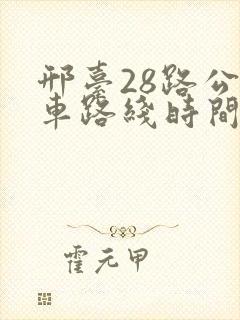 邢臺28路公
車路綫時間
霍元甲